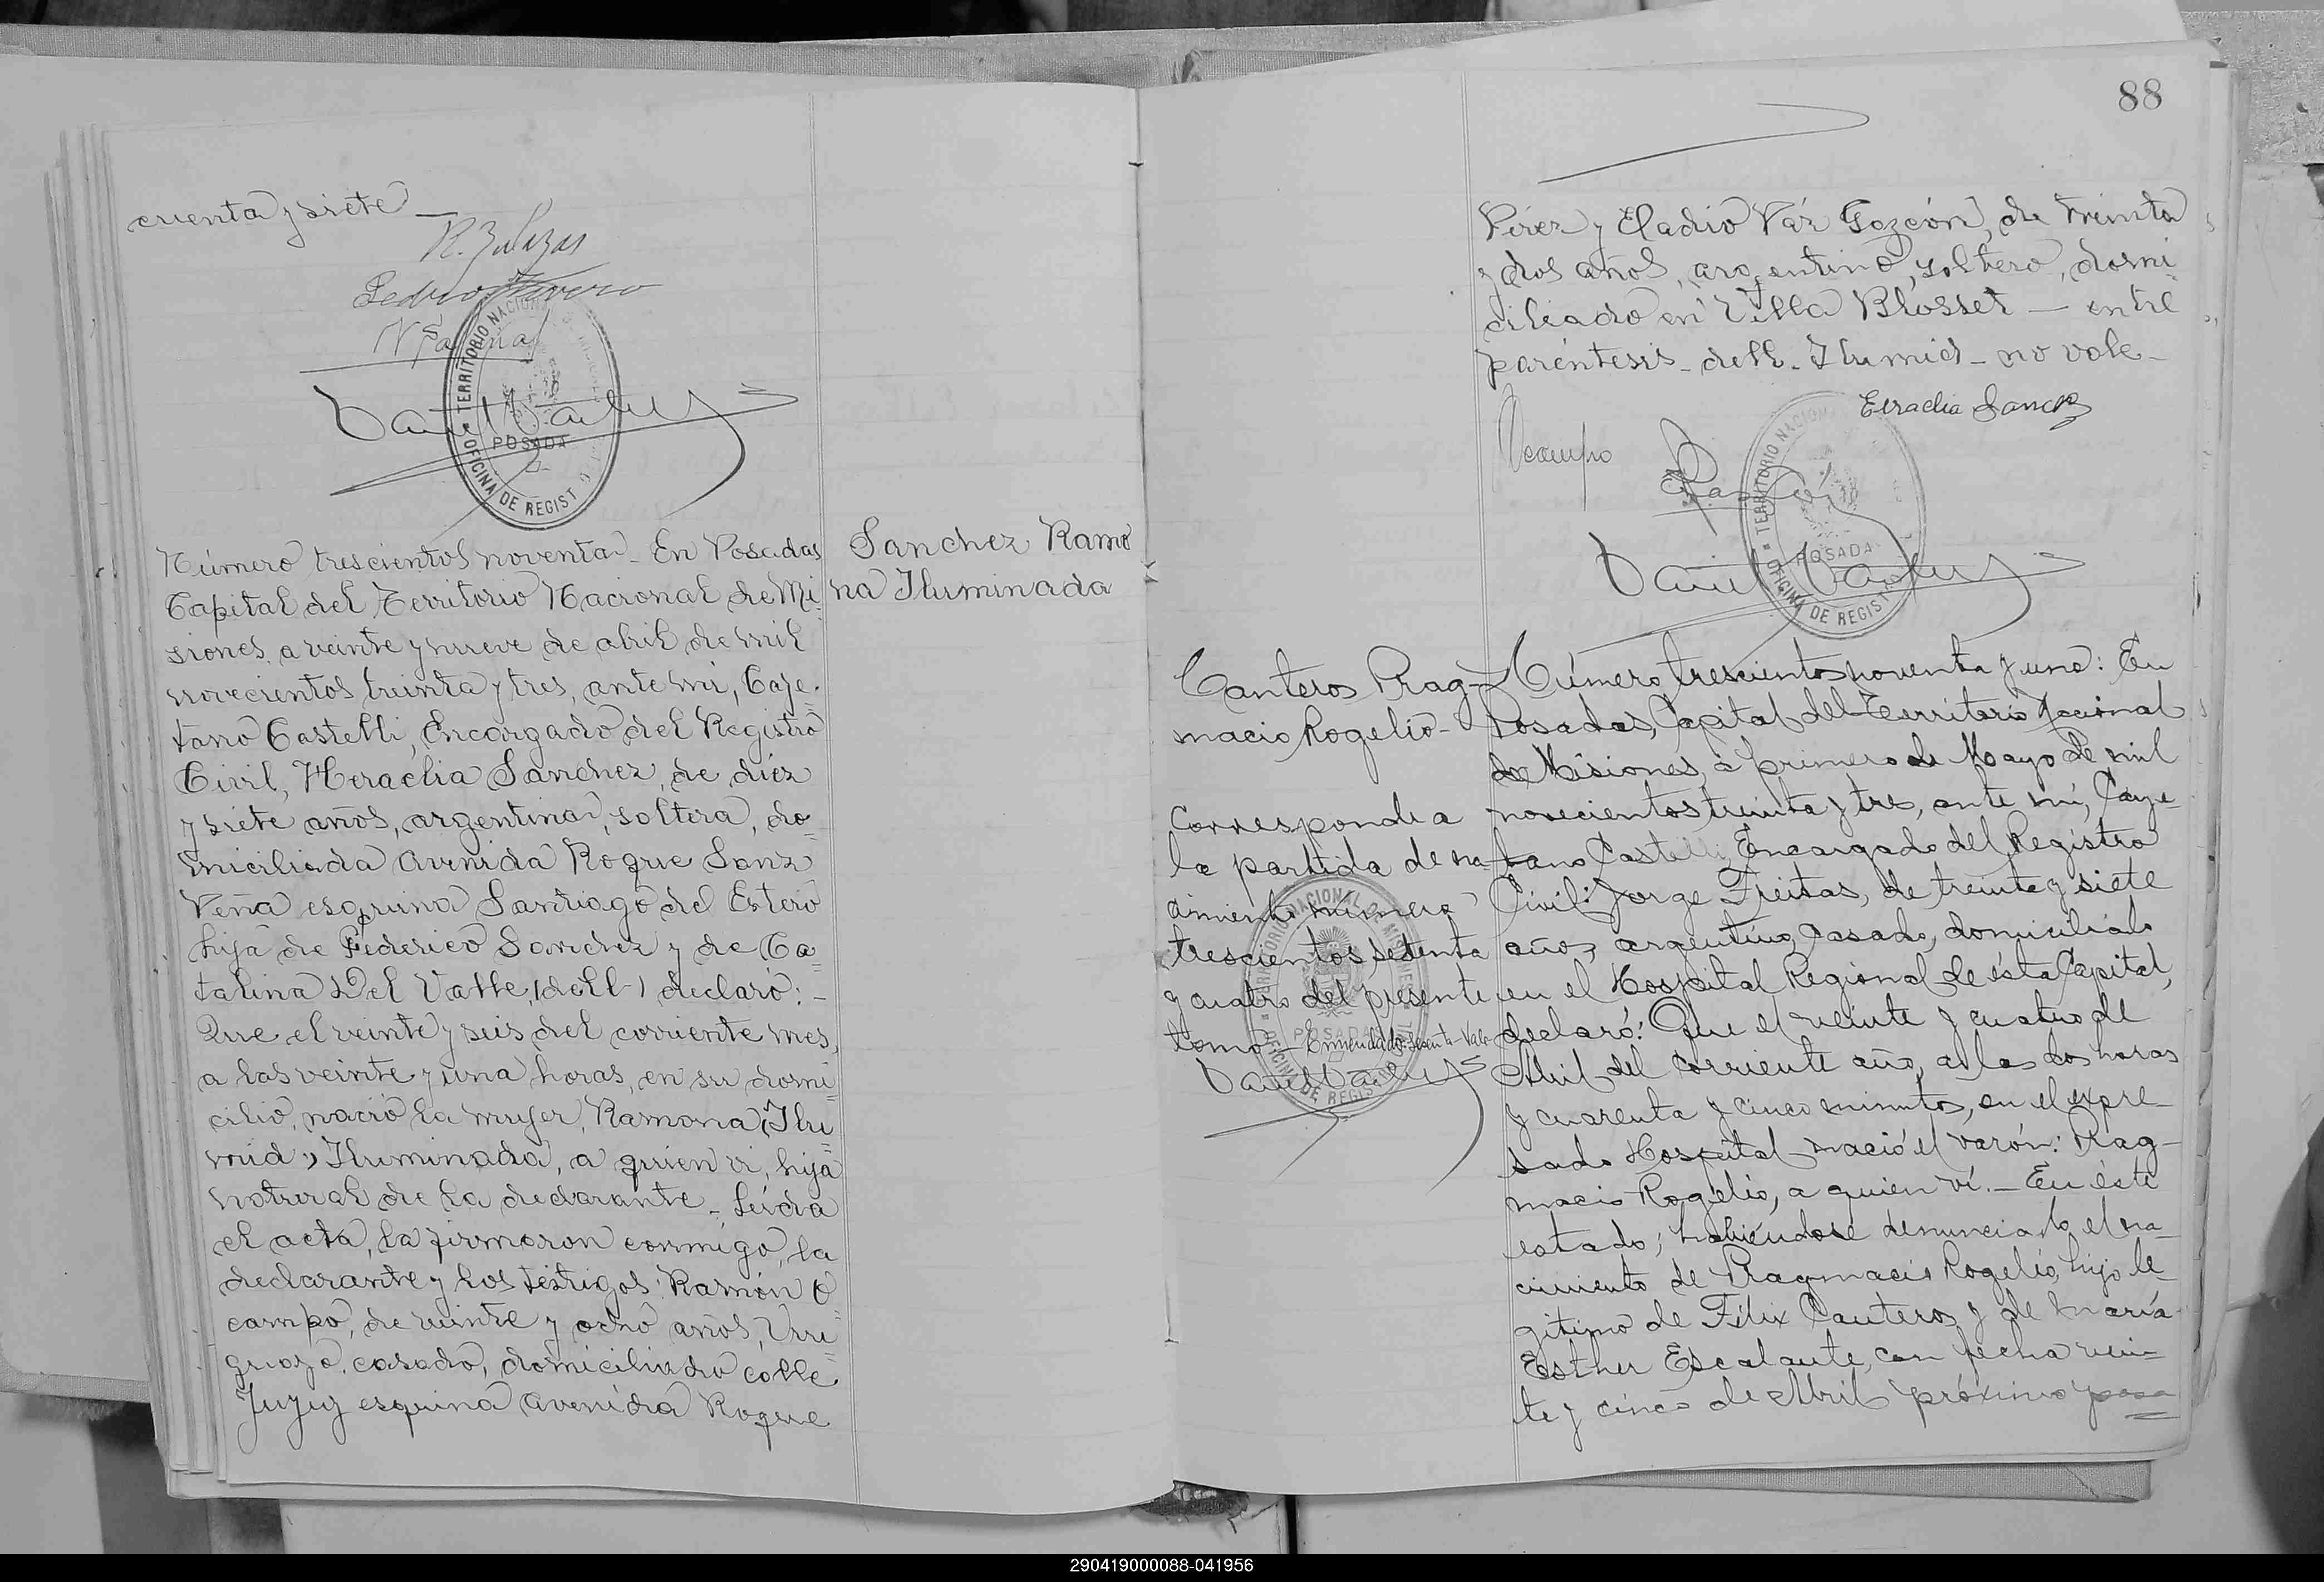 cuenta y siete
Pedro
TERRITORIO NACIONAL
POSADAS
OFICINA DE REGIST
Número trescientos noventa. En Posadas
Capital del Territorio Nacional de Mi
siones, a veinte y nueve de abril de mil
novecientos treinta y tres, ante mi, Caye=
tano Castelli, Encargado del Registro
Civil, Heraclia Sanchez, de diez
y siete años, argentina, soltera, do=
miciliada Avenida Roque Sanz
Peña esquina Santiago del Estero
hija de Federico Sanchez y de Ca=
talina Del Valle, (dell) declaró: -
Que el veinte y seis del corriente mes,
a las veinte y una horas, en su domi=
cilio, nació la mujer, Ramona (Ilu=
mid) Iluminada, a quien vi, hija
natural de la declarante. Leida
el acta, la firmaron conmigo, la
declarante y los testigos: Ramón O=
campo, de veinte y ocho años, Uru=
guayo, casado, domiciliado calle
Jujuy esquina Avenida Roque
Sanchez Ramo
na Iluminada
88
Pérez y Eladio Paz Gozcón, de treinta
y dos años, argentino, soltero, domi=
ciliado en Villa Blosset - entre
paréntesis - dell - Ilumid - no vale -
Eraclia Sanchez
Ocampo
TERRITORIO NACIONAL
POSADAS
OFICINA DE REGIST
Canteros Prag-
macio Rogelio-
Corresponde a
la partida de na-
cimiento numero
trescientos setenta
y cuatro del presente
tomo - Enmendado: setenta - Vale
TERRITORIO NACIONAL DE MISIONES
POSADAS
OFICINA DE REGIST
Número trescientos noventa y uno: En
Posadas, Capital del Territorio Nacional
de Misiones, a primero de Mayo de mil
novecientos treinta y tres, ante mí, Caye-
tano Castelli, Encargado del Registro
Civil: Jorge Freitas, de treinta y siete
años, argentino, casado, domiciliado
en el Hospital Regional de ésta Capital,
declaró: Que el veinte y cuatro de
Abril del corriente año, a las dos horas
y cuarenta y cinco minutos, en el expre-
sado Hospital nació el varón: Prag-
macio Rogelio, a quien ví. - En éste
estado; habiéndose denunciado el na-
cimiento de Pragmacio Rogelio, hijo le-
gitimo de Félix Canteros y de María
Esther Escalante, con fecha vein-
te y cinco de Abril próximo pasa
290419000088-041956